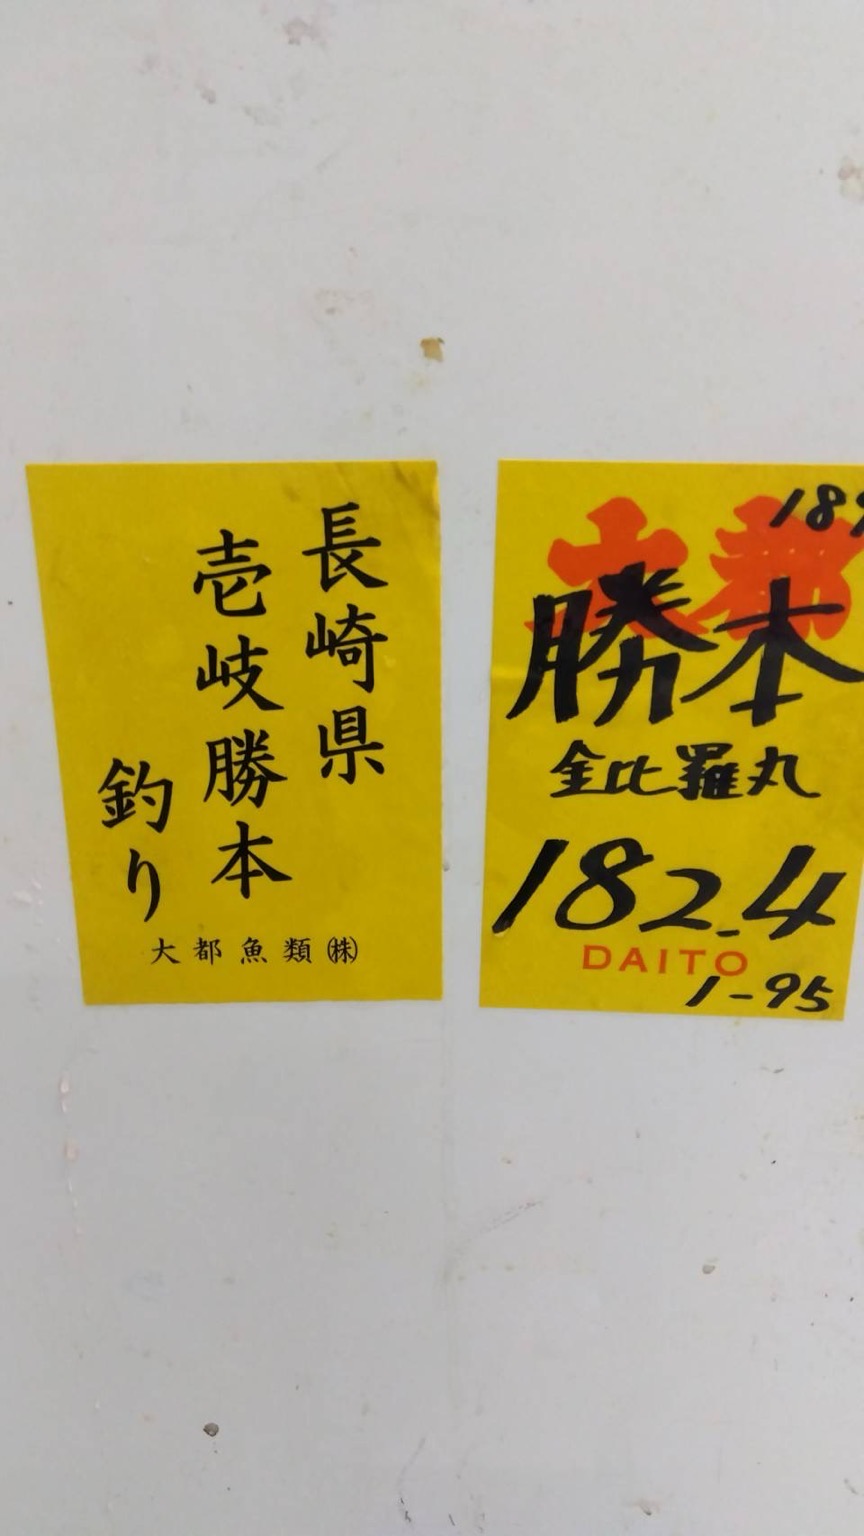 長崎県
壱岐勝本
釣り
大都魚類㈱
189
大都
勝本
金比羅丸
182.4
DAITO
1-95